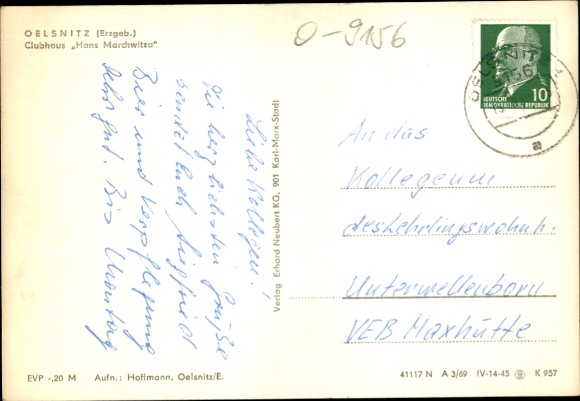 OELSNITZ (Erzgeb.)
Clubhaus „Hans Marchwitza"
O-9156
OELSNITZ
9156
DEUTSCHE
DEMOKRATISCHE REPUBLIK
10
a
Liebe Kollegen!
die herzlichsten Grüße
sendet euch Siegfried
Bier und Verpflegung
sehr gut. Bis Montag
Verlag Erhard Neubert KG, 901 Karl-Marx-Stadt
An das
Kollegium
des Lehrlingswohnh.
Unterwellenborn
VEB Maxhütte
EVP -,20 M Aufn.: Hoffmann, Oelsnitz/E.
41117 N A 3/69 IV-14-45 K 957